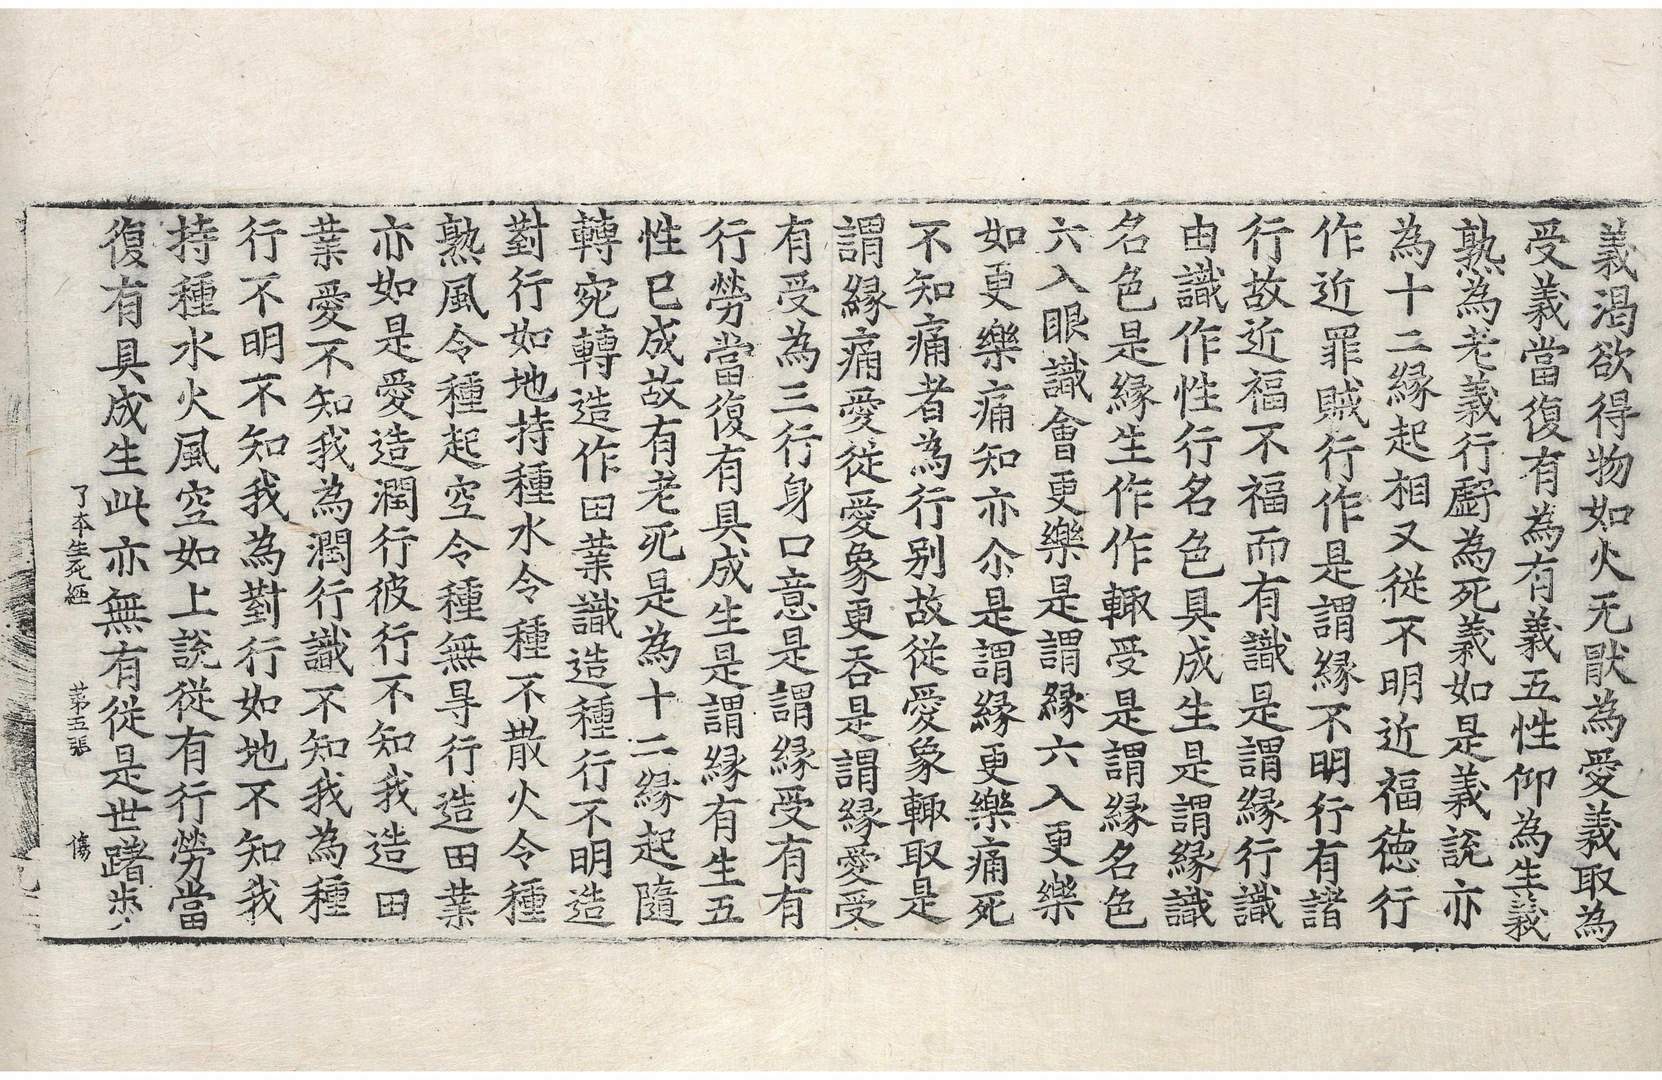 義渴欲得物如火无猒為愛義取為
受義當復有為有義五性仰為生義
熟為老義行廢為死義如是義說亦
為十二緣起相又從不明近福徳行
作近罪賊行作是謂緣不明行有諸
行故近福不福而有識是謂緣行識
由識作性行名色具成生是謂緣識
名色是緣生作作輙受是謂緣名色
六入眼識會更樂是謂緣六入更樂
如更樂痛知亦尒是謂緣更樂痛死
不知痛者為行別故從愛象輙取是
謂緣痛愛從愛象更吞是謂緣愛受
有受為三行身口意是謂緣受有有
行勞當復有具成生是謂緣有生五
性已成故有老死是為十二緣起隨
轉宛轉造作田業識造種行不明造
對行如地持種水令種不散火令種
熟風令種起空令種無㝵行造田業
亦如是愛造潤行彼行不知我造田
業愛不知我為潤行識不知我為種
行不明不知我為對行如地不知我
持種水火風空如上說從有行勞當
復有具成生此亦無有從是世躇步
了本生死經 第五張 傷